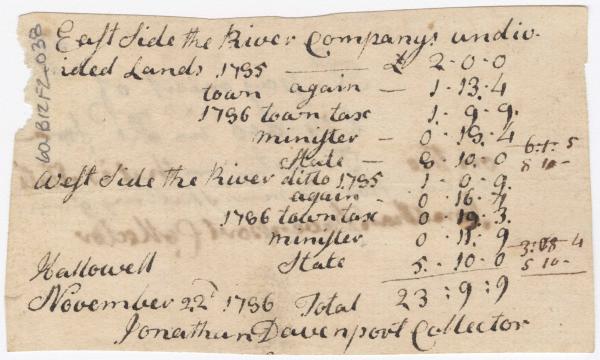 East Side the River Companys undiv-
ided Lands 1785 — £ 2-0-0
town again — 1-13-4
1786 town tax 1-9-9
minister — 0-18-4
6-1-5
State — 8-10-0
8 10-
West Side the River ditto 1785 1-0-9
again — 0-16-4
1786 town tax 0-19-3
minister 0-11-9
3:08-4
Hallowell State 5-10-0
5 10-
November 22d 1786 Total 23:9:9
Jonathan Davenport Collector